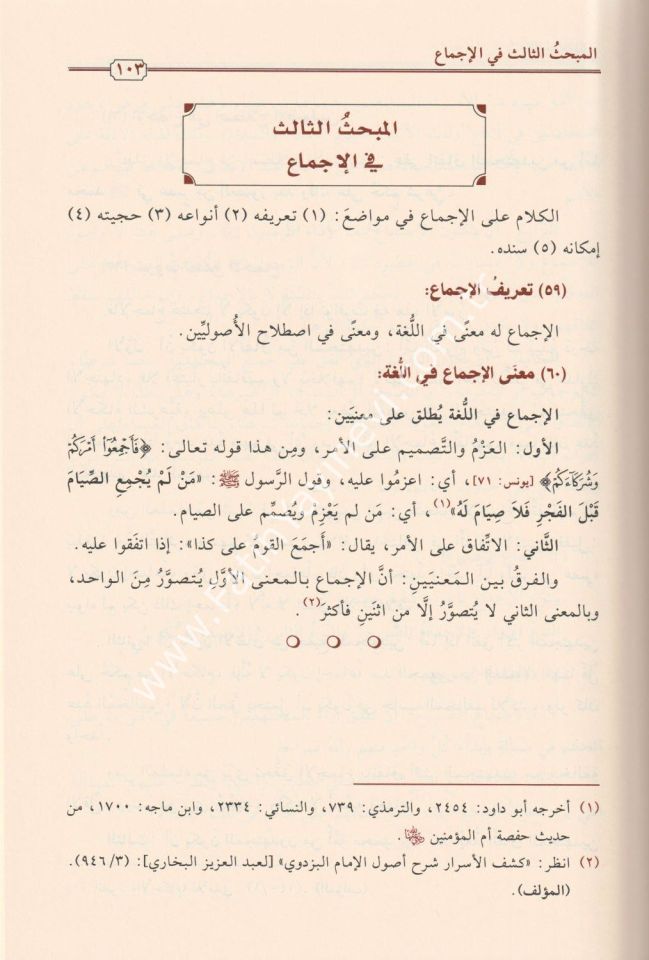 المبحثُ الثالث في الإجماع
١٠٣
المبحثُ الثالث
في الإجماع
الكلام على الإجماع في مواضعَ: (١) تعريفه (٢) أنواعه (٣) حجيته (٤)
إمكانه (٥) سنده.
(٥٩) تعريفُ الإجماع:
الإجماع له معنًى في اللُّغة، ومعنًى في اصطلاح الأُصوليِّين.
(٦٠) معنَى الإجماع في اللُّغة:
الإجماع في اللُّغة يُطلق على معنيَين:
الأول: العَزْمُ والتَّصميم على الأمر، ومِن هذا قوله تعالى: ﴿فَأَجْمِعُوٓا۟ أَمْرَكُمْ
وَشُرَكَآءَكُمْ﴾ [يونس: ٧١]، أي: اعزمُوا عليه، وقول الرَّسول ﷺ: «مَنْ لَمْ يُجْمِعِ الصِّيَامَ
قَبْلَ الفَجْرِ فَلاَ صِيَامَ لَهُ»(١)، أي: مَن لم يَعْزِمْ ويُصَمِّم على الصيام.
الثَّاني: الاتِّفاق على الأمر، يقال: «أَجمَعَ القومُ على كذا»: إذا اتفَقُوا عليه.
والفرقُ بين المَعنيَينِ: أنَّ الإجماع بالمعنى الأوَّل يُتصوَّرُ مِنَ الواحد،
وبالمعنى الثاني لا يُتصوَّرُ إلَّا من اثنَينِ فأكثرَ(٢).
(١) أخرجه أبو داود: ٢٤٥٤، والترمذي: ٧٣٩، والنسائي: ٢٣٣٤، وابن ماجه: ١٧٠٠، من
حديث حفصة أم المؤمنين
(٢) انظر: «كشف الأسرار شرح أصول الإمام البزدوي» [لعبد العزيز البخاري]: (٩٤٦/٣).
(المؤلف).